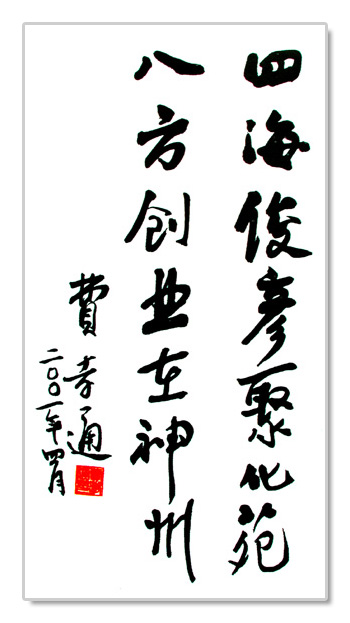 四海俊彦聚化苑
八方创业在神州
费孝通
二〇〇一年四月